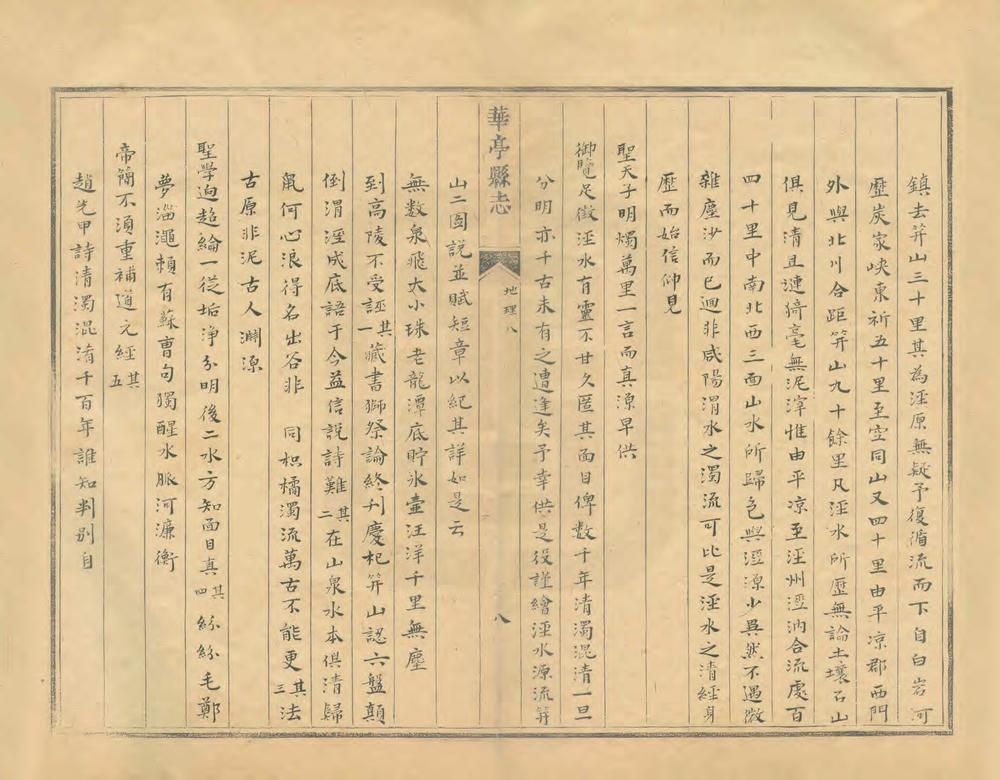 鎮去笄山三十里其為涇原無疑予復循流而下自白岩河
歷炭家峽東祈五十里至空同山又四十里由平凉郡西門
外與北川合距笄山九十餘里凡涇水所歷無論土壤石山
俱見清且漣猗毫無泥滓惟由平凉至涇州涇汭合流處百
四十里中南北西三面山水所歸色與涇源少異然不過微
雜塵沙而已迴非咸陽渭水之濁流可比是涇水之清經身
歷而始信仰見
聖天子明燭萬里一言而真源早供
御覽足徵涇水有靈不甘久匿其面目俾數千年清濁混清一旦
分明亦千古未有之遭逢矣予幸供是役謹繪涇水源流笄
華亭縣志
地理八
八
山二圖說並賦短章以紀其詳如是云
無數泉飛大小珠老龍潭底貯氷壷汪洋千里無塵
到高陵不受誣其一藏書獅祭論終刋慶杞笄山認六盤顛
倒渭涇成底語于今益信說詩難其二在山泉水本俱清歸
鼠何心浪得名出谷非 同枳橘濁流萬古不能更其三法
古原非泥古人淵源
聖學逈超綸一從垢淨分明後二水方知面目真其四紛紛毛鄭
夢淄澠頼有蘇曹句獨醒水脈河濂衡
帝簡不須重補道元經其五
趙先甲詩清濁混淆千百年誰知判别自